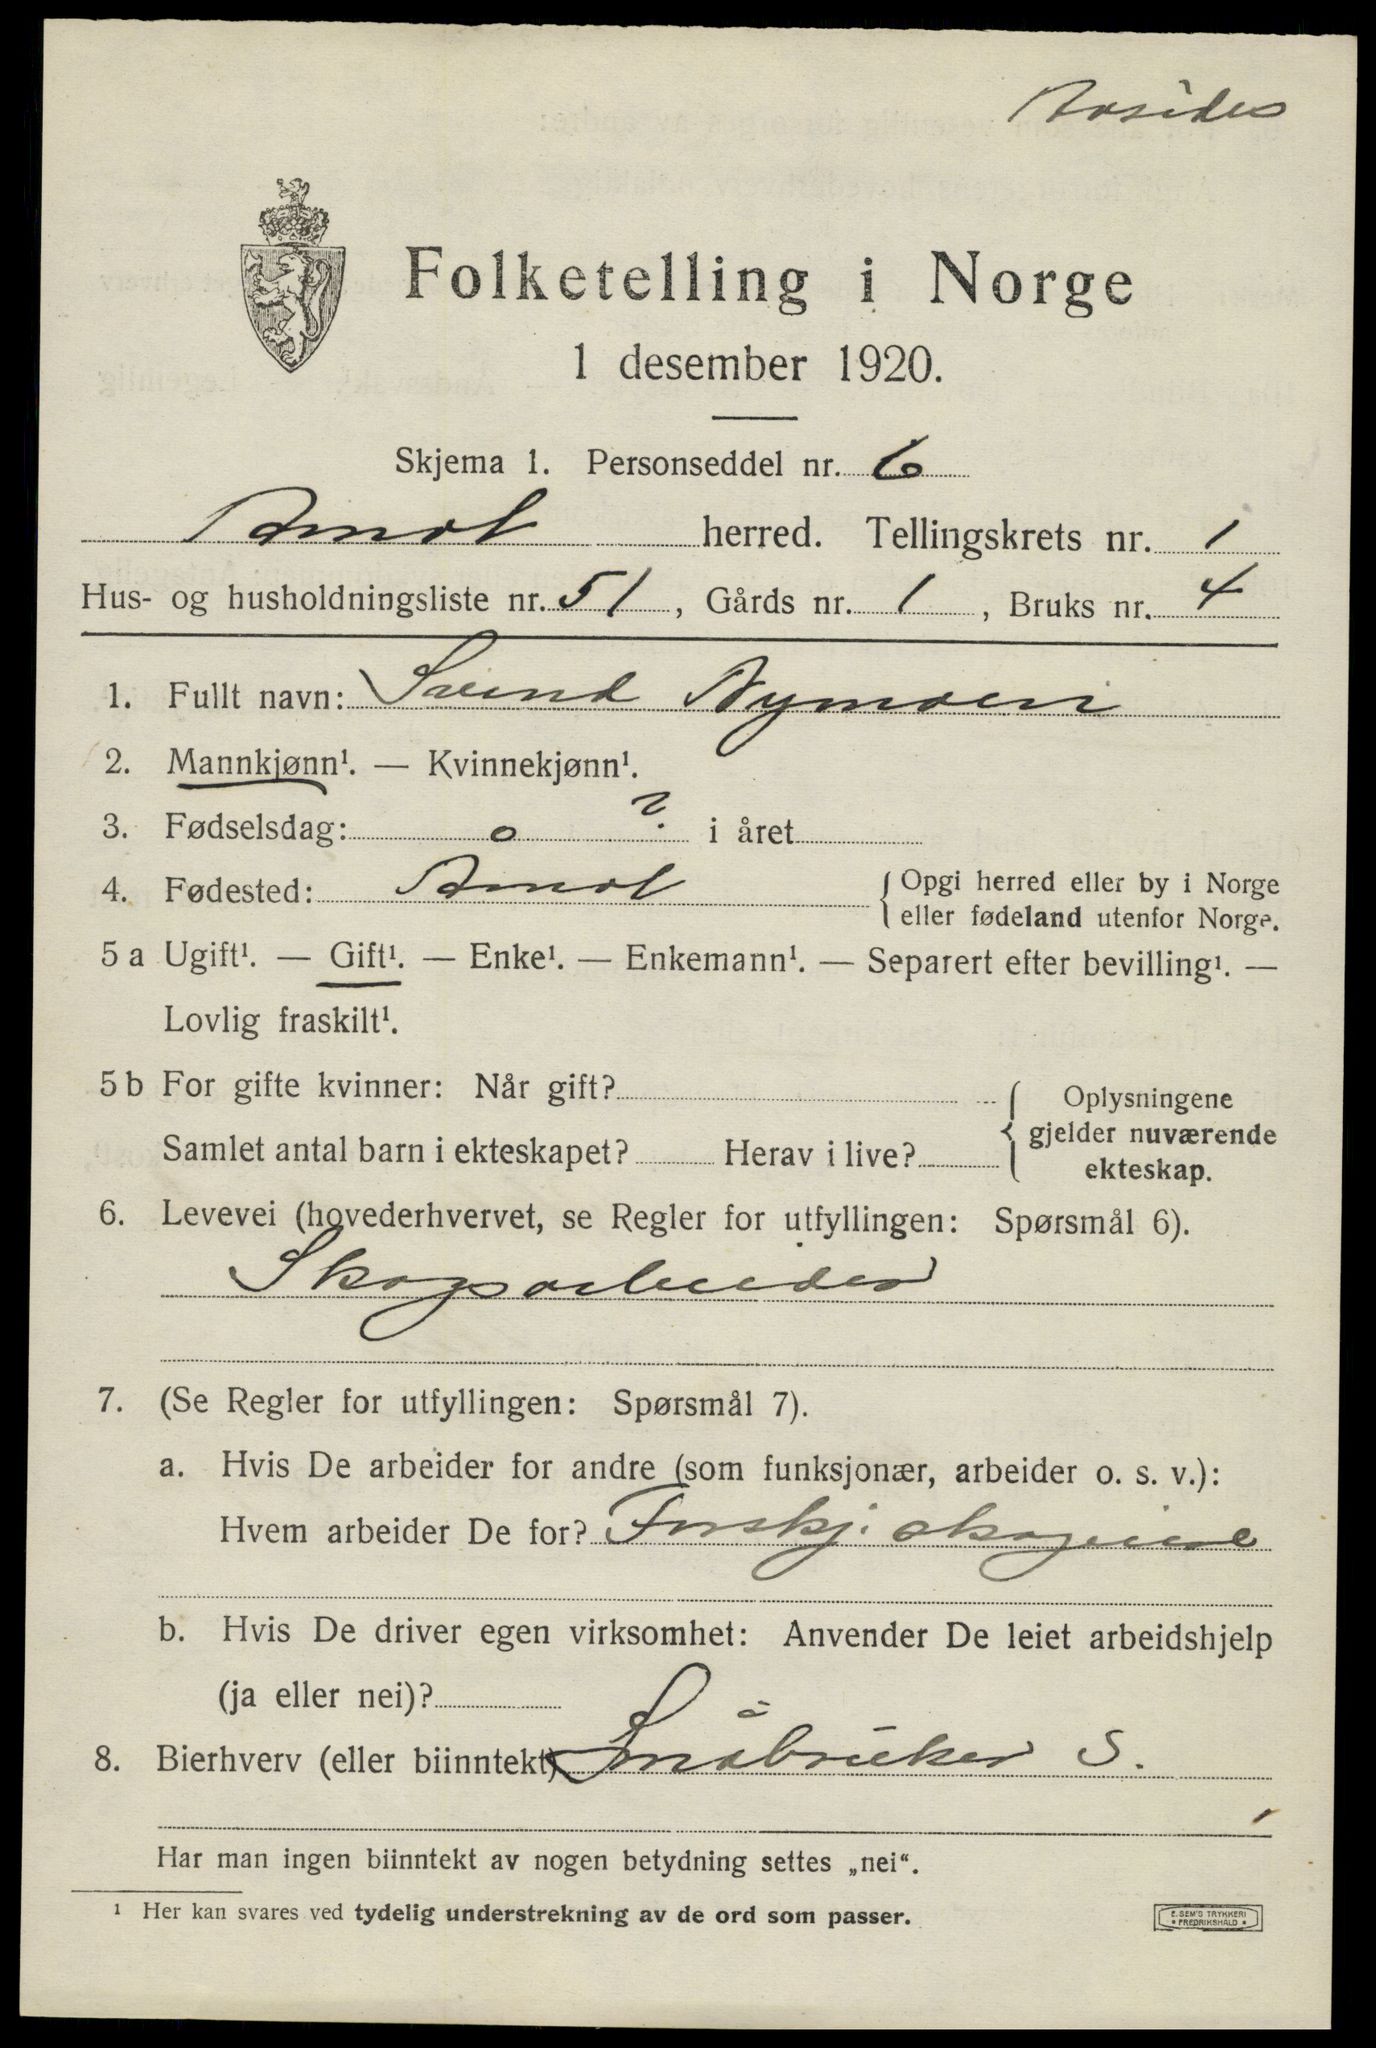 Folketelling i Norge
1 desember 1920.
Skjema 1. Personseddel nr. 6
Åmot herred. Tellingskrets nr. 1
Hus- og husholdningsliste nr. 51, Gårds nr. 1, Bruks nr. 4
1. Fullt navn: Svend Nymoen
2. Mannkjønn¹. — Kvinnekjønn¹.
3. Fødselsdag: o ? i året
4. Fødested: Åmot { Opgi herred eller by i Norge
eller fødeland utenfor Norge.
5 a Ugift¹. — Gift¹. — Enke¹. — Enkemann¹. — Separert efter bevilling¹. —
Lovlig fraskilt¹.
5 b For gifte kvinner: Når gift? { Oplysningene
gjelder nuværende
Samlet antal barn i ekteskapet? Herav i live? ekteskap.
6. Levevei (hovederhvervet, se Regler for utfyllingen: Spørsmål 6).
Skogsarbeider
7. (Se Regler for utfyllingen: Spørsmål 7).
a. Hvis De arbeider for andre (som funksjonær, arbeider o. s. v.):
Hvem arbeider De for? Forskj. skogeiere
b. Hvis De driver egen virksomhet: Anvender De leiet arbeidshjelp
(ja eller nei)?
8. Bierhverv (eller biinntekt) Småbruker S.
Har man ingen biinntekt av nogen betydning settes „nei“.
¹ Her kan svares ved tydelig understrekning av de ord som passer.
E. SEM'S TRYKKERI
FREDRIKSHALD